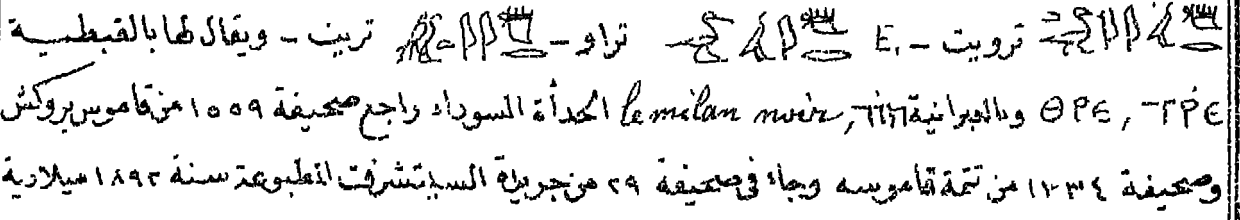 ترويت - E, تراو - تريت - ويقال لها بالقبطية
ⲐⲢⲈ, ⲦⲢⲈ وبالعبرانية le milan noir, الحدأة السوداء راجع صحيفة ١٥٥٩ من قاموس بروكش
وصحيفة ١٣٣٤ من تتمة قاموسه وجاء في صحيفة ٢٩ من جريدة السيتشرفت المطبوعة سنة ١٨٩٢ ميلادية